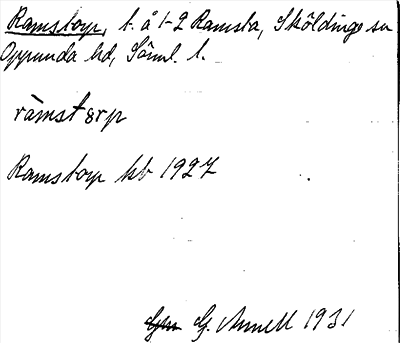 Ramstorp, t. å 1-2 Ramsta, Sköldinge sn
Oppunda hd, Söml. l.
ràmstɔrp
Ramstorp kb 1927
G. Annell 1931